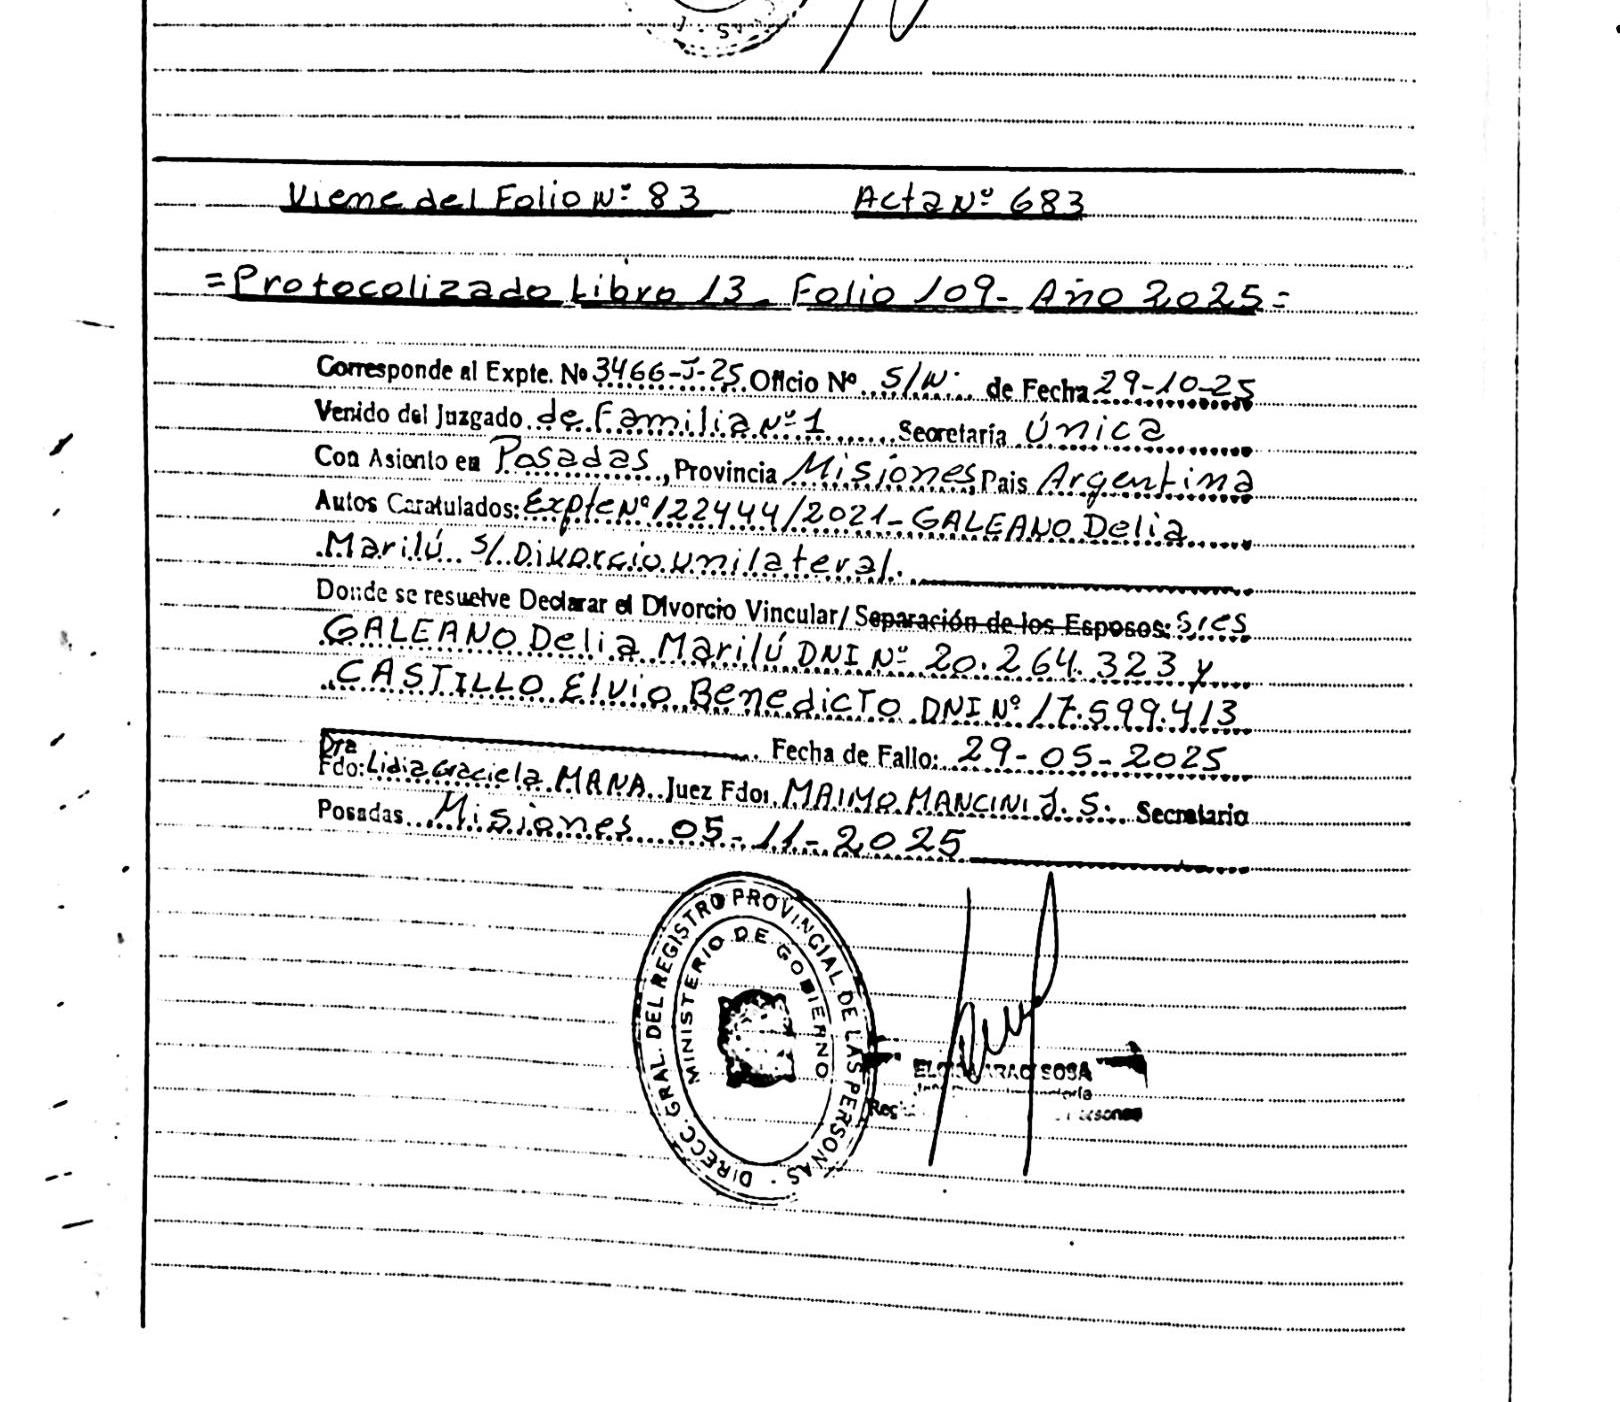 Viene del Folio Nº 83 Acta Nº 683
=Protocolizado Libro 13 - Folio 109 - Año 2025=
Corresponde al Expte. Nº 3466-J-25 Oficio Nº S/N. de Fecha 29-10-25
Venido del Juzgado de Familia Nº 1 Secretaría Única
Con Asiento en Posadas, Provincia Misiones, Pais Argentina
Autos Caratulados: Expte Nº 122444/2021- GALEANO Delia
Marilú s/ Divorcio unilateral.
Donde se resuelve Declarar el Divorcio Vincular/ Separación de los Esposos: Sres
GALEANO Delia Marilú DNI Nº 20.264.323 y
CASTILLO Elvio Benedicto DNI Nº 17.599.413
Fecha de Fallo: 29-05-2025
Dra
Fdo: Lidia Graciela MANA Juez Fdo: MAIMO MANCINI J. S. Secretario
Posadas Misiones 05-11-2025
DIRECC. GRAL. DEL REGISTRO PROVINCIAL DE LAS PERSONAS
MINISTERIO DE GOBIERNO
SOSA